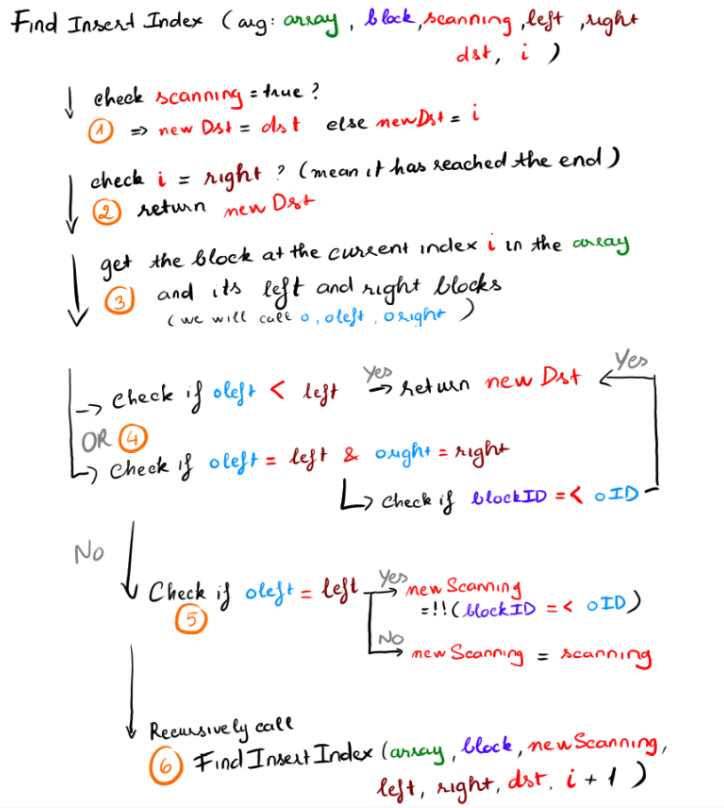 Find Insert Index (arg: array, block, scanning, left, right
dst, i )
check scanning = true ?
① => new Dst = dst else newDst = i
check i = right ? (mean it has reached the end)
② return new Dst
get the block at the current index i in the array
③ and its left and right blocks
(we will call o, oleft, oright )
-> check if oleft < left Yes -> return new Dst <- Yes
OR ④
-> check if oleft = left & oright = right
-> check if blockID =< oID
No
Check if oleft = left Yes -> new Scanning
⑤ =!!(blockID =< oID)
No -> new Scanning = scanning
Recursively call
⑥ Find Insert Index (array, block, new Scanning,
left, right, dst, i + 1 )